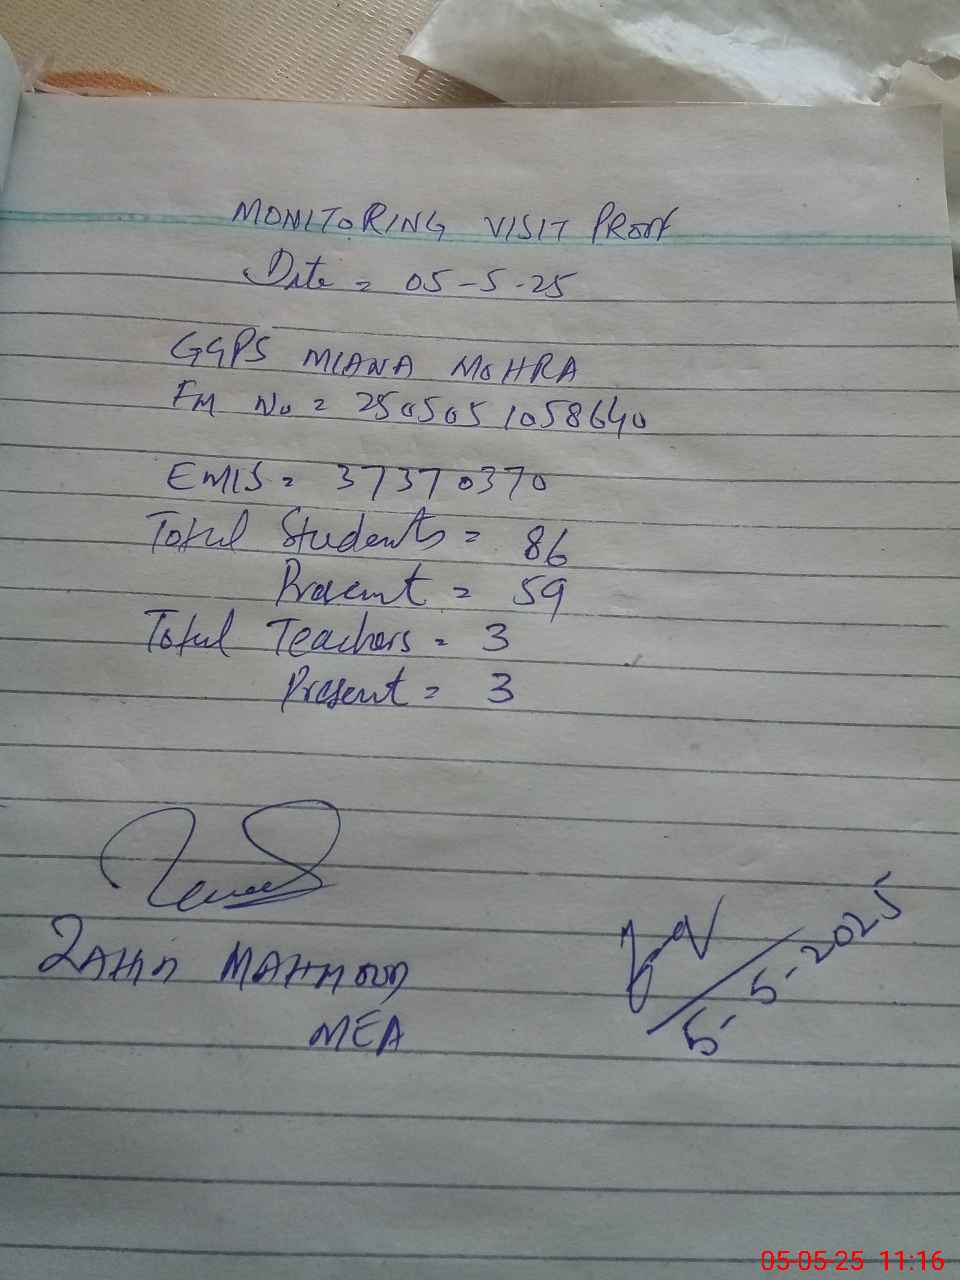 MONITORING VISIT PROOF
Date = 05-5-25
GGPS MIANA MOHRA
FM No = 2505051058640
EMIS = 37370370
Total Students = 86
Present = 59
Total Teachers = 3
Present = 3
MAHMOOD
MEA
5-5-2025
05-05-25 11:16